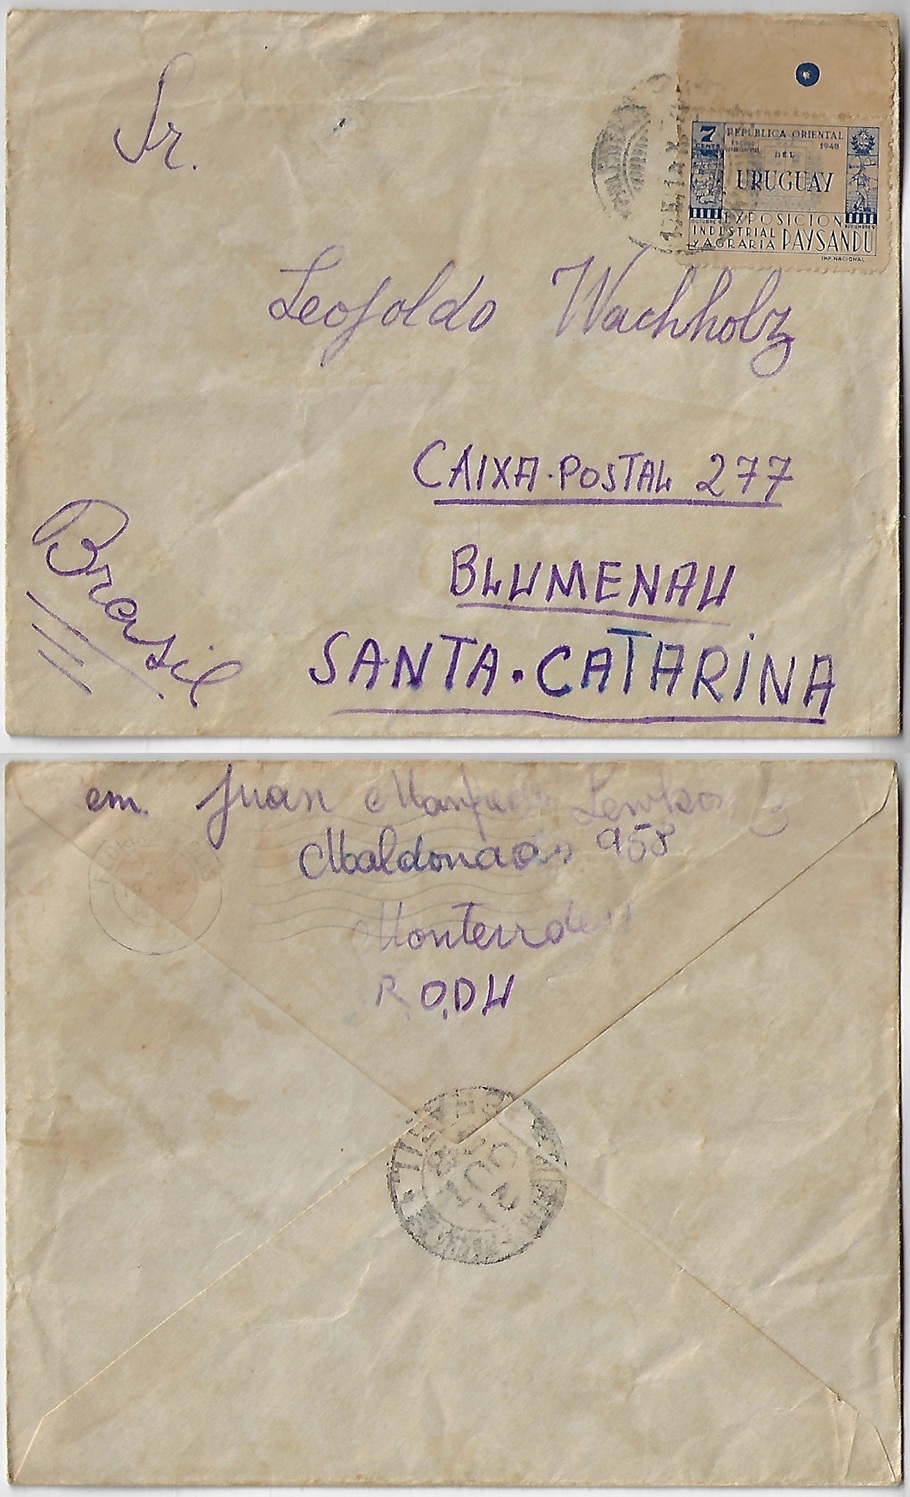 Sr.
7
CENTS
REPUBLICA ORIENTAL
1948
DEL
URUGUAY
EXPOSICION
INDUSTRIAL
Y AGRARIA PAYSANDU
IMP. NACIONAL
Leopoldo Wachholz
CAIXA-POSTAL 277
BLUMENAU
SANTA-CATARINA
Brasil
em. Juan
Maldonado 958
Montevideo
R.O.D.U
BRASIL